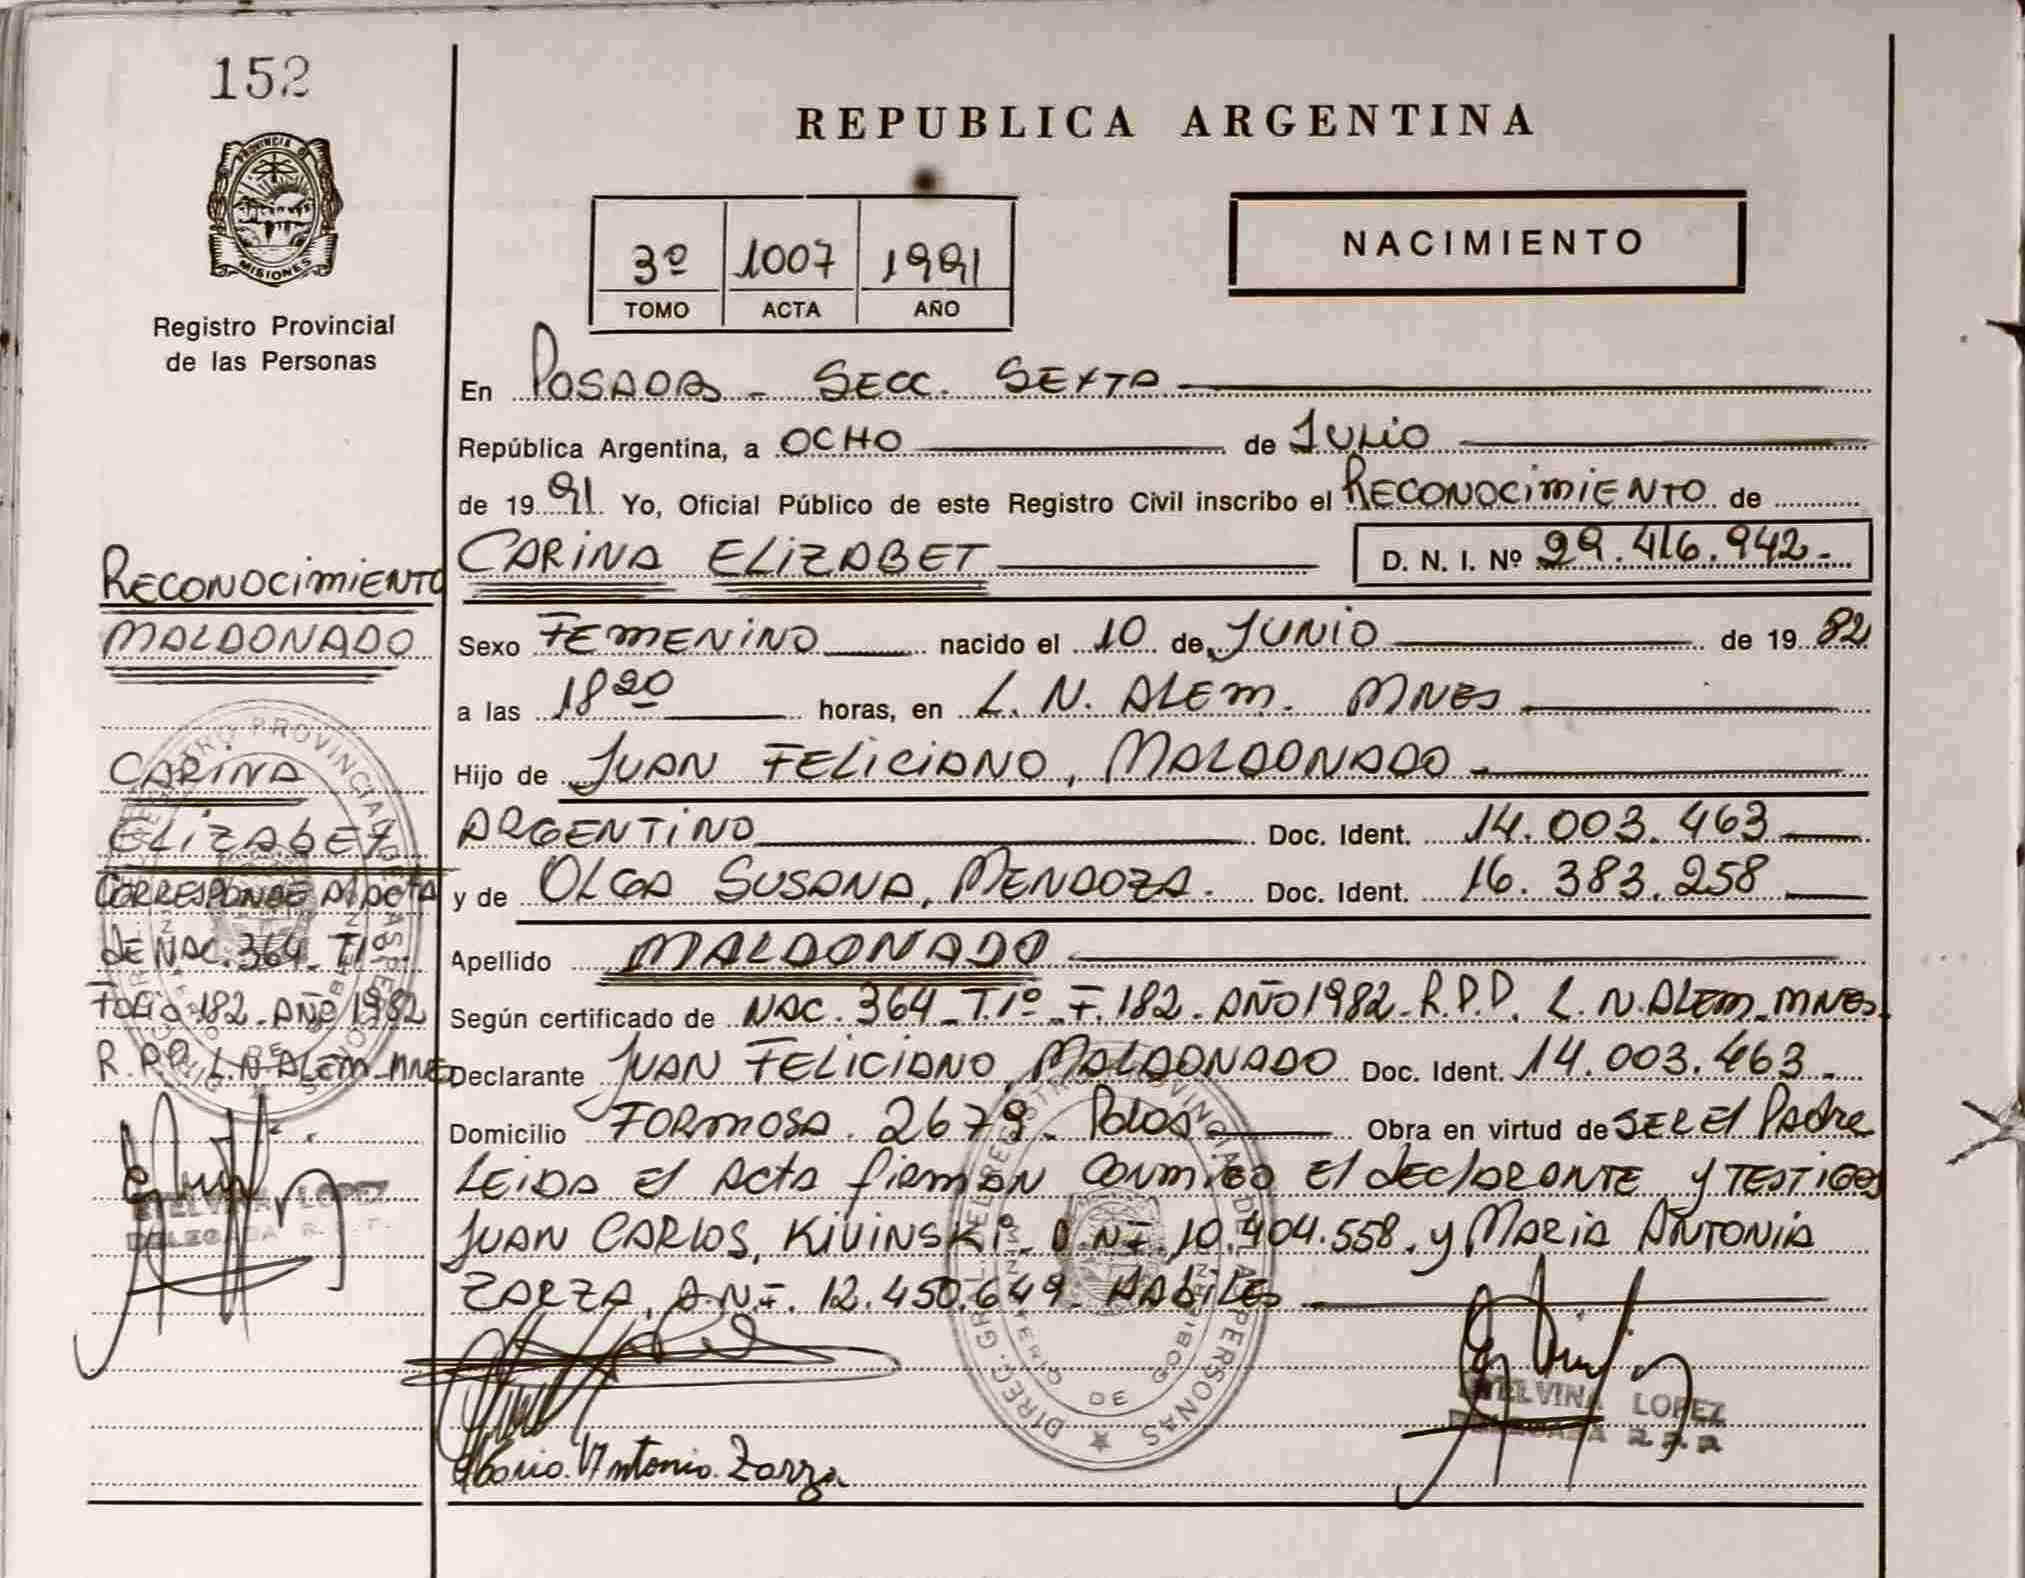 152
PROVINCIA DE
MISIONES
Registro Provincial
de las Personas
REPUBLICA ARGENTINA
3º 1007 1991
TOMO ACTA AÑO
NACIMIENTO
En POSADAS - SECC. SEXTA
República Argentina, a OCHO de JULIO
de 1991 Yo, Oficial Público de este Registro Civil inscribo el RECONOCIMIENTO de
CARINA ELIZABET D. N. I. Nº 29.416.942.-
Sexo FEMENINO nacido el 10 de JUNIO de 1982
a las 18 20 horas, en L. N. ALEM. MNES
Hijo de JUAN FELICIANO, MALDONADO
ARGENTINO Doc. Ident. 14.003.463
y de OLGA SUSANA, MENDOZA. Doc. Ident. 16.383.258
Apellido MALDONADO
Según certificado de NAC. 364 - T.1º - F. 182 - AÑO 1982 - R.P.P. L. N. ALEM - MNES.
Declarante JUAN FELICIANO, MALDONADO Doc. Ident. 14.003.463.
Domicilio FORMOSA. 2679 - Pdas Obra en virtud de SER El Padre
LEIDA El Acta firman Conmigo El dEclARANTE y TESTIGOS
JUAN CARLOS, KIVINSKi. D.N.I. 10.404.558. y MARIA ANTONIA
ZARZA, D.N.I. 12.450.649. HABiLES
RECONOCIMIENTO
MALDONADO
CARINA
ELIZABET
CORRESPONDE Al ACTA
dE NAC. 364 - T.1º.
FOLIO 182 - AÑO 1982
R.P.P. L.N. ALEM - MNES
ETELVINA LOPEZ
DELEGADA R. P. P.
DIREC. GRL. DEL REGISTRO PROVINCIAL DE LAS PERSONAS
MINISTERIO DE GOBIERNO
Maria Antonia Zarza
ETELVINA LOPEZ
DELEGADA R. P. P.